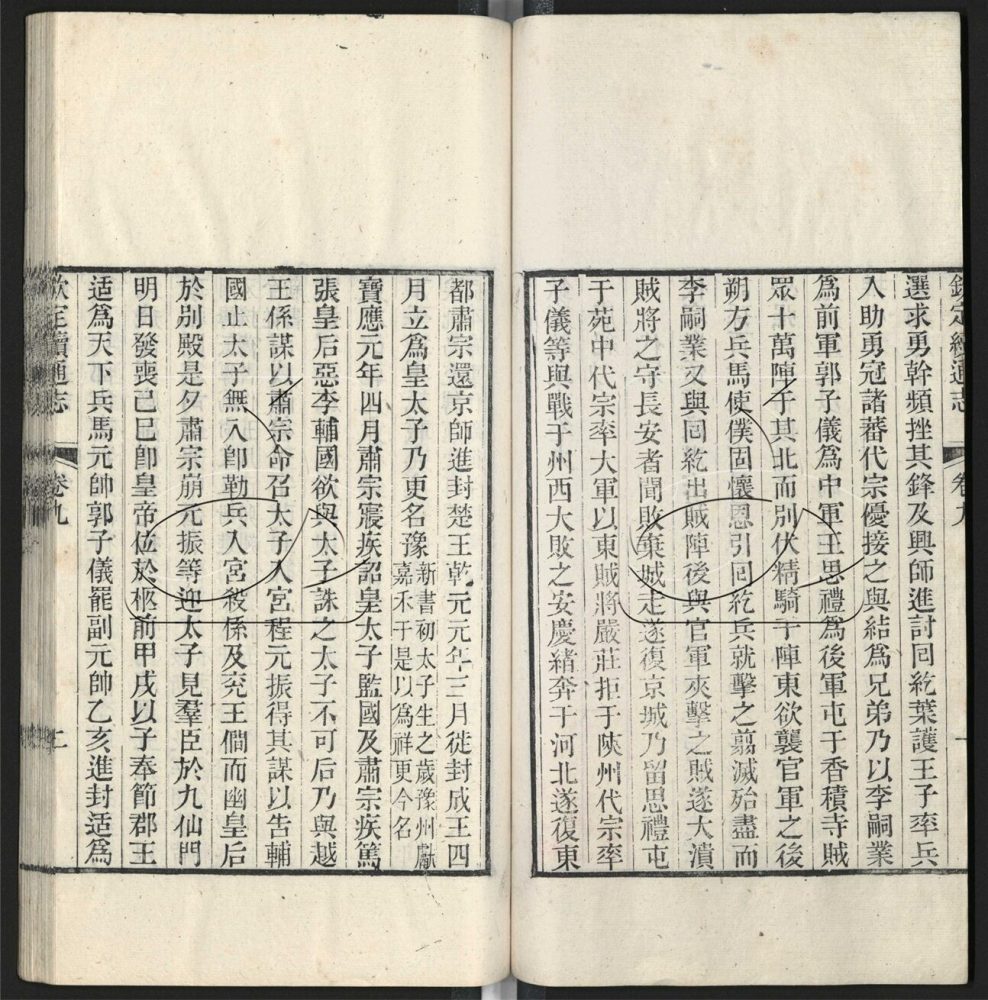 欽定續通志 卷九 一
選求勇幹頻挫其鋒及興師進討回紇葉護王子率兵
入助勇冠諸蕃代宗優接之與結為兄弟乃以李嗣業
為前軍郭子儀為中軍王思禮為後軍屯于香積寺賊
眾十萬陣于其北而別伏精騎于陣東欲襲官軍之後
朔方兵馬使僕固懷恩引回紇兵就擊之翦滅殆盡而
李嗣業又與回紇出賊陣後與官軍夾擊之賊遂大潰
賊將之守長安者聞敗棄城走遂復京城乃留思禮屯
于苑中代宗率大軍以東賊將嚴莊拒于陝州代宗率
子儀等與戰于州西大敗之安慶緒奔于河北遂復東
都肅宗還京師進封楚王乾元元年三月徙封成王四
月立為皇太子乃更名豫新書初太子生之歲豫州獻嘉禾于是以為祥更今名
寶應元年四月肅宗寢疾詔皇太子監國及肅宗疾篤
張皇后惡李輔國欲與太子誅之太子不可后乃與越
王係謀以肅宗命召太子入宮程元振得其謀以告輔
國止太子無入卽勒兵入宮殺係及兗王僩而幽皇后
於別殿是夕肅宗崩元振等迎太子見羣臣於九仙門
明日發喪己巳卽皇帝位於柩前甲戌以子奉節郡王
适為天下兵馬元帥郭子儀罷副元帥乙亥進封适為
欽定續通志 卷九 二